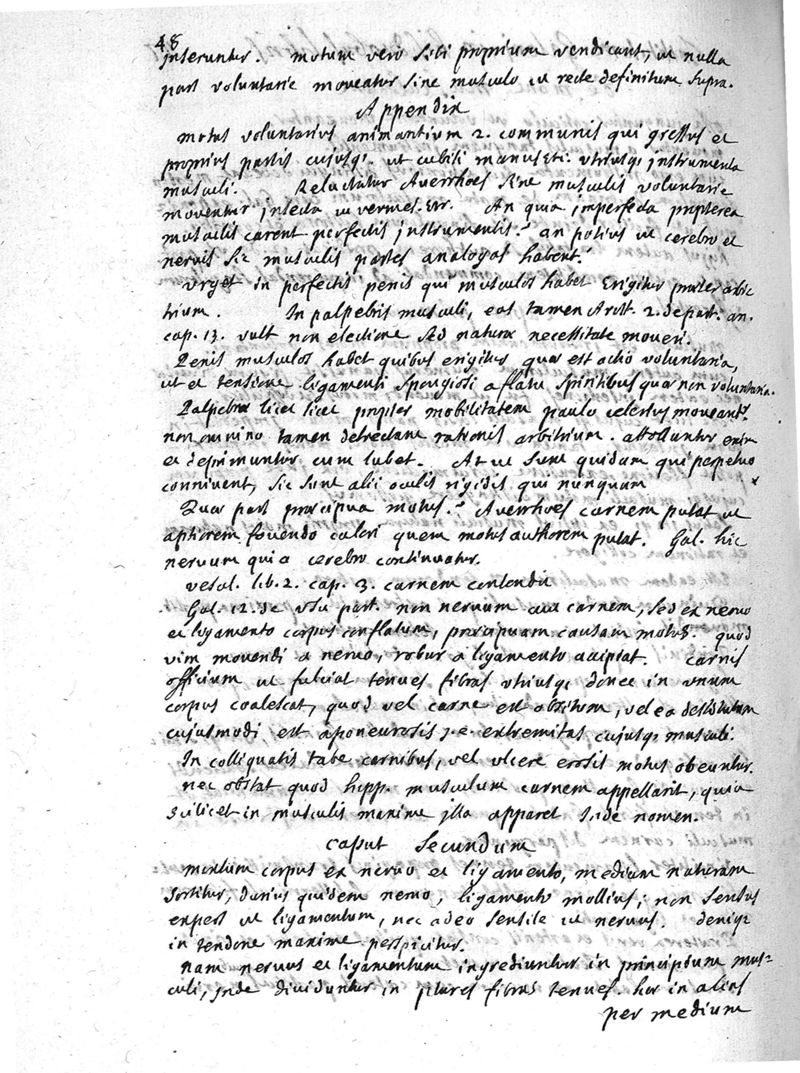 48
inseruntur. motum vero sibi proprium vendicant, ut nulla
pars voluntarie moveatur sine musculo ut recte definitum supra.
Appendix
motus voluntarius animantium 2. communis qui gressus et
proprius partis cujusq. ut cubiti manus etc. utriusq; instrumenta
musculi. Reluctatur Averrhoes sine musculis voluntarie
moventur insecta ut vermes. etc. An quia imperfecta propterea
musculis carent perfectis instrumentis? an potius ut cerebro et
nervis sic musculis partes analogas habent?
Urget in perfectis penis qui musculos habet Erigitur praeter arbi-
trium. In palpebris musculi, eas tamen Arist. 2. de part. an.
cap. 13. vult non electione sed naturae necessitate moveri.
Penis musculos habet quibus erigitur quae est actio voluntaria,
ut et tensione ligamenti spongiosi a flatu spiritibus quae non voluntaria.
Palpebrae licet propter mobilitatem paulo celerius moveantr
non omnino tamen detrectant rationis arbitrium. attolluntur enim
et deprimuntur cum lubet. At ut sunt quidam qui perpetuo
connivent, sic sunt alii oculis rigidis qui nunquam
Quae pars praecipua motus? Averrhoes carnem putat ut
aptiorem fovendo calori quem motus authorem putat. Gal. hic
nervum qui a cerebro continuatur.
vesal. lib. 2. cap. 3. carnem contendit
Gal. 12. de usu part. non nervum aut carnem, sed ex nervo
et ligamento corpus conflatum, praecipuam causam motus. quod
vim movendi a nervo, robur a ligamento accipiat. carnis
officium ut fulciat tenues fibras utriusq; donec in unum
corpus coalescat, quod vel carne est obsitum, vel ea destitutum
cujusmodi est aponeurosis j.e. extremitas cujusq; musculi.
In colliquatis tabe carnibus, vel ulcere erosis motus obeuntur.
nec obstat quod hipp. musculum carnem appellarit, quia
scilicet in musculis maxime illa apparet Inde nomen.
Caput Secundum
mixtum corpus ex nervo et ligamento, mediam naturam
sortitur, durius quidem nervo, ligamento mollius; non sensus
expers ut ligamentum, nec adeo sensile ut nervus. deniq;
in tendone maxime perspicitur.
nam nervus et ligamentum ingrediuntur in principium mus=
culi, inde dividuntur in plures fibras tenues. hae in aliis
per medium